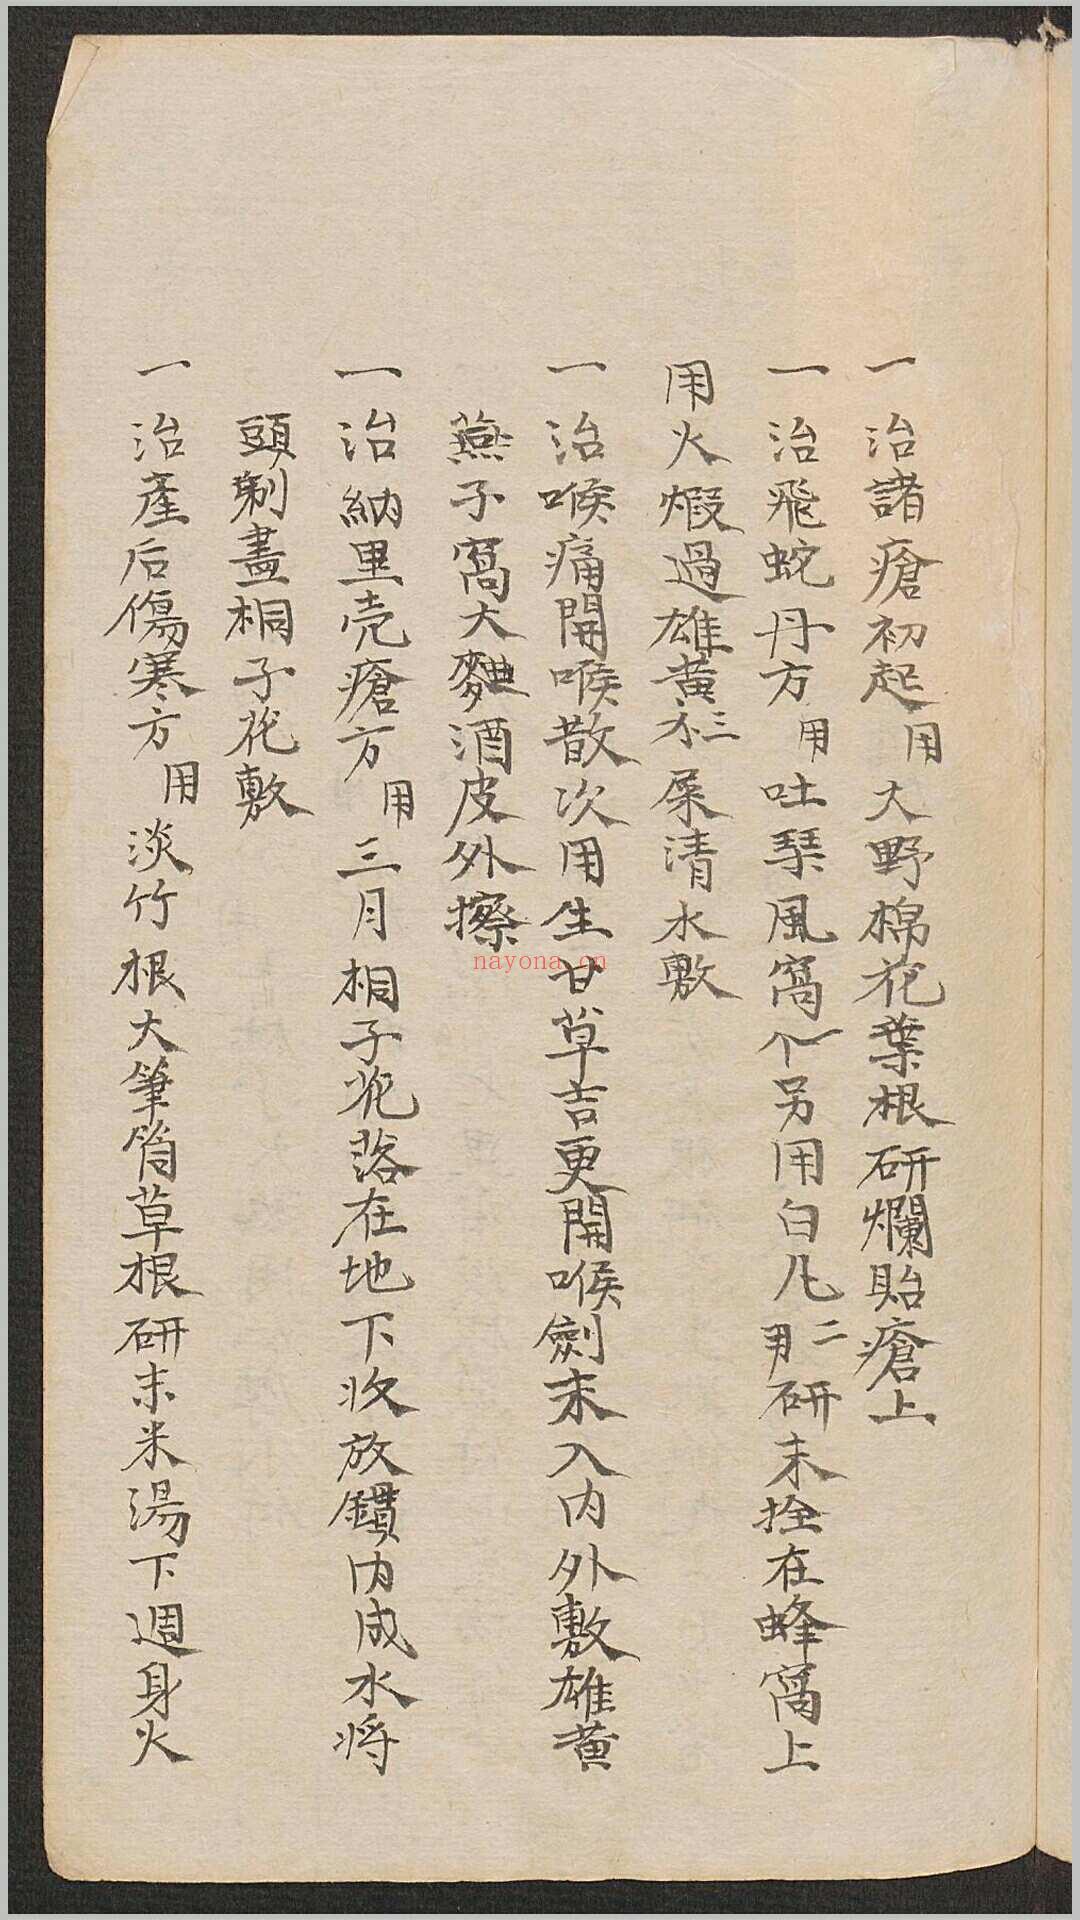 一治諸瘡初起用大野棉花葉根研爛貼瘡上
一治飛蛇丹方用吐琹風窩一个另用白凡二用研末拴在蜂窩上
用火煆過雄黃三尿清水敷
一治喉痛開喉散次用生甘草吉更開喉劍末入内外敷雄黃
燕子窩大麯酒皮外擦
一治納里壳瘡方用三月桐子花落在地下收放鑵内成水将
頭剃盡桐子花敷
一治產后傷寒方用淡竹根大筆筒草根研末米湯下週身火
nayona.cn